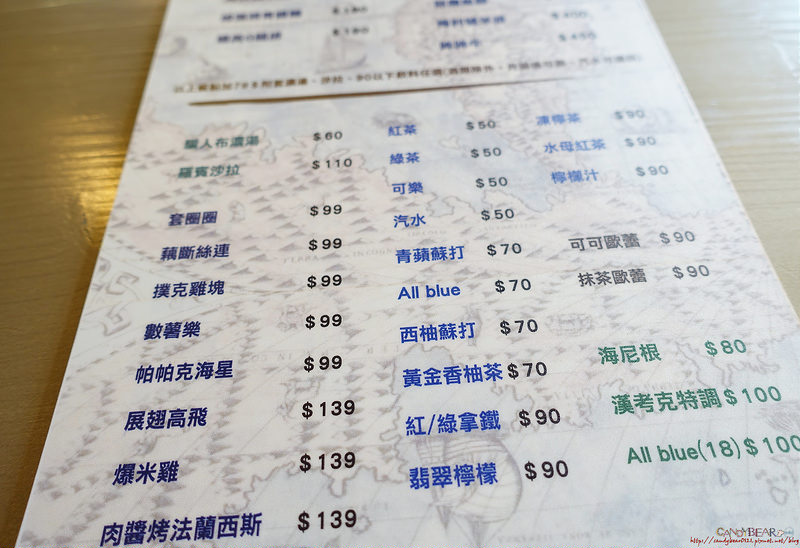 $180
$180
$400
$450
獵人布濃湯 $60
羅賓沙拉 $110
套圈圈 $99
藕斷絲連 $99
撲克雞塊 $99
數薯樂 $99
帕帕克海星 $99
展翅高飛 $139
爆米雞 $139
肉醬烤法蘭西斯 $139
紅茶 $50
綠茶 $50
可樂 $50
汽水 $50
青蘋蘇打 $70
All blue $70
西柚蘇打 $70
黃金香柚茶 $70
紅/綠拿鐵 $90
翡翠檸檬 $90
凍檸茶 $90
水母紅茶 $90
檸檬汁 $90
可可歐蕾 $90
抹茶歐蕾 $90
海尼根 $80
漢考克特調 $100
All blue(18) $100
CANDYBEAR